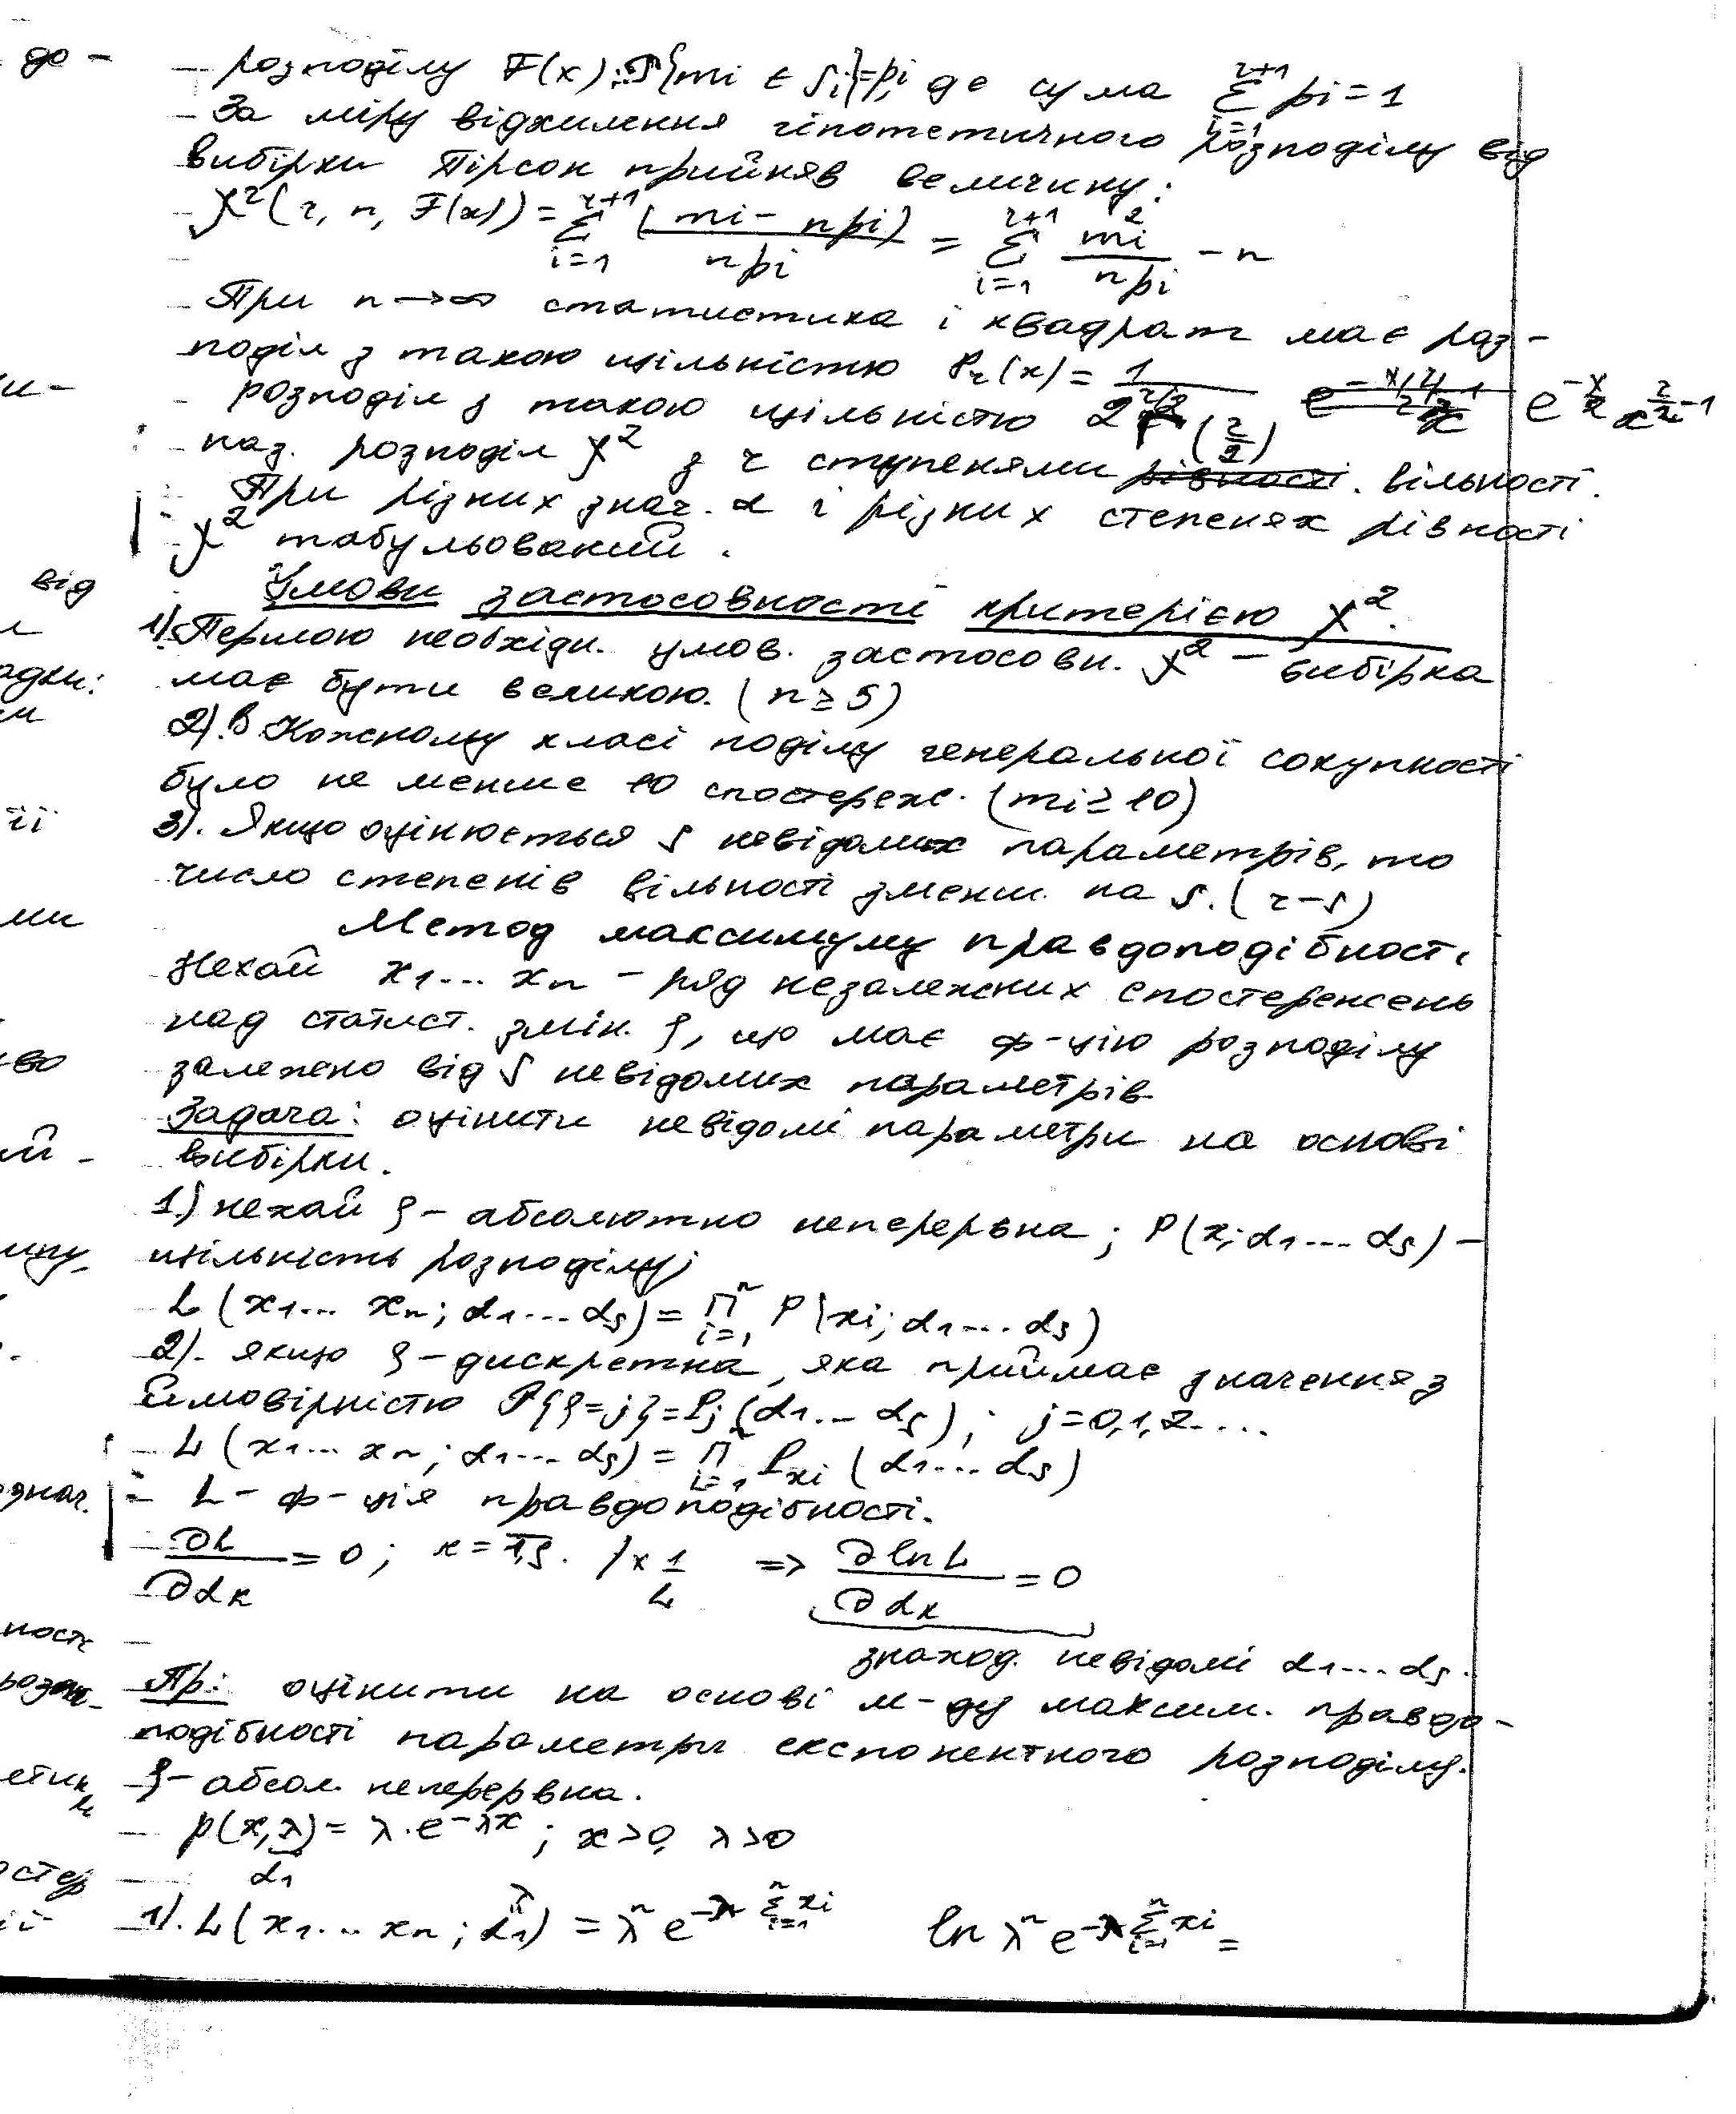 розподілу F(x): P{mi ∈ Si}=pi, де сума Σ_{i=1}^{r+1} pi = 1
За міру відхилення гіпотетичного розподілу від
вибірки Пірсон прийняв величину:
χ²(r, n, F(x)) = Σ_{i=1}^{r+1} (mi - npi)/npi = Σ_{i=1}^{r+1} mi²/npi - n
При n→∞ статистика і квадрат має роз-
поділ з такою щільністю Pr(x) = 1/(2^{r/2} Г(r/2)) e^{-x/2} x^{r/2-1}
розподіл з такою щільністю
наз. розподіл χ² з r ступенями рівності. вільності.
При різних знач. α і різних степенях рівності
χ² табульований.
Умови застосовності критерією χ².
1) Першою необхідн. умов. застосовн. χ² - вибірка
має бути великою. (n ≥ 5)
2). В Кожному класі поділу генеральної сокупності
було не менше 10 спостереж. (mi ≥ 10)
3). Якщо оцінюється s невідомих параметрів, то
число степенів вільності зменш. на s. (r-s)
Метод максимуму правдоподібності
Нехай x1... xn - ряд незалежних спостережень
над статист. змін. ξ, що має ф-цію розподілу
залежно від s невідомих параметрів
Задача: оцінити невідомі параметри на основі
вибірки.
1) нехай ξ - абсолютно неперервна; P(x; α1... αs) -
щільність розподілу;
L(x1... xn; α1... αs) = Π_{i=1}^{n} P(xi; α1... αs)
2). якщо ξ - дискретна, яка приймає значення з
ймовірністю P{ξ=j}=Pj(α1... αs); j=0,1,2....
L(x1... xn; α1... αs) = Π_{i=1}^{n} Pxi(α1... αs)
L - ф-ція правдоподібності.
∂L/∂αk = 0; k = 1,s. /× 1/L => ∂lnL/∂αk = 0
знаход. невідомі α1... αs.
Пр: оцінити на основі м-ду максим. правдо-
подібності параметри експонентного розподілу.
ξ - абсол. неперервна.
p(x,λ) = λ·e^{-λx}; x>0, λ>0
α1
1). L(x1... xn; α1) = λ^n e^{-λ Σ_{i=1}^{n} xi} ln λ^n e^{-λ Σ_{i=1}^{n} xi} =